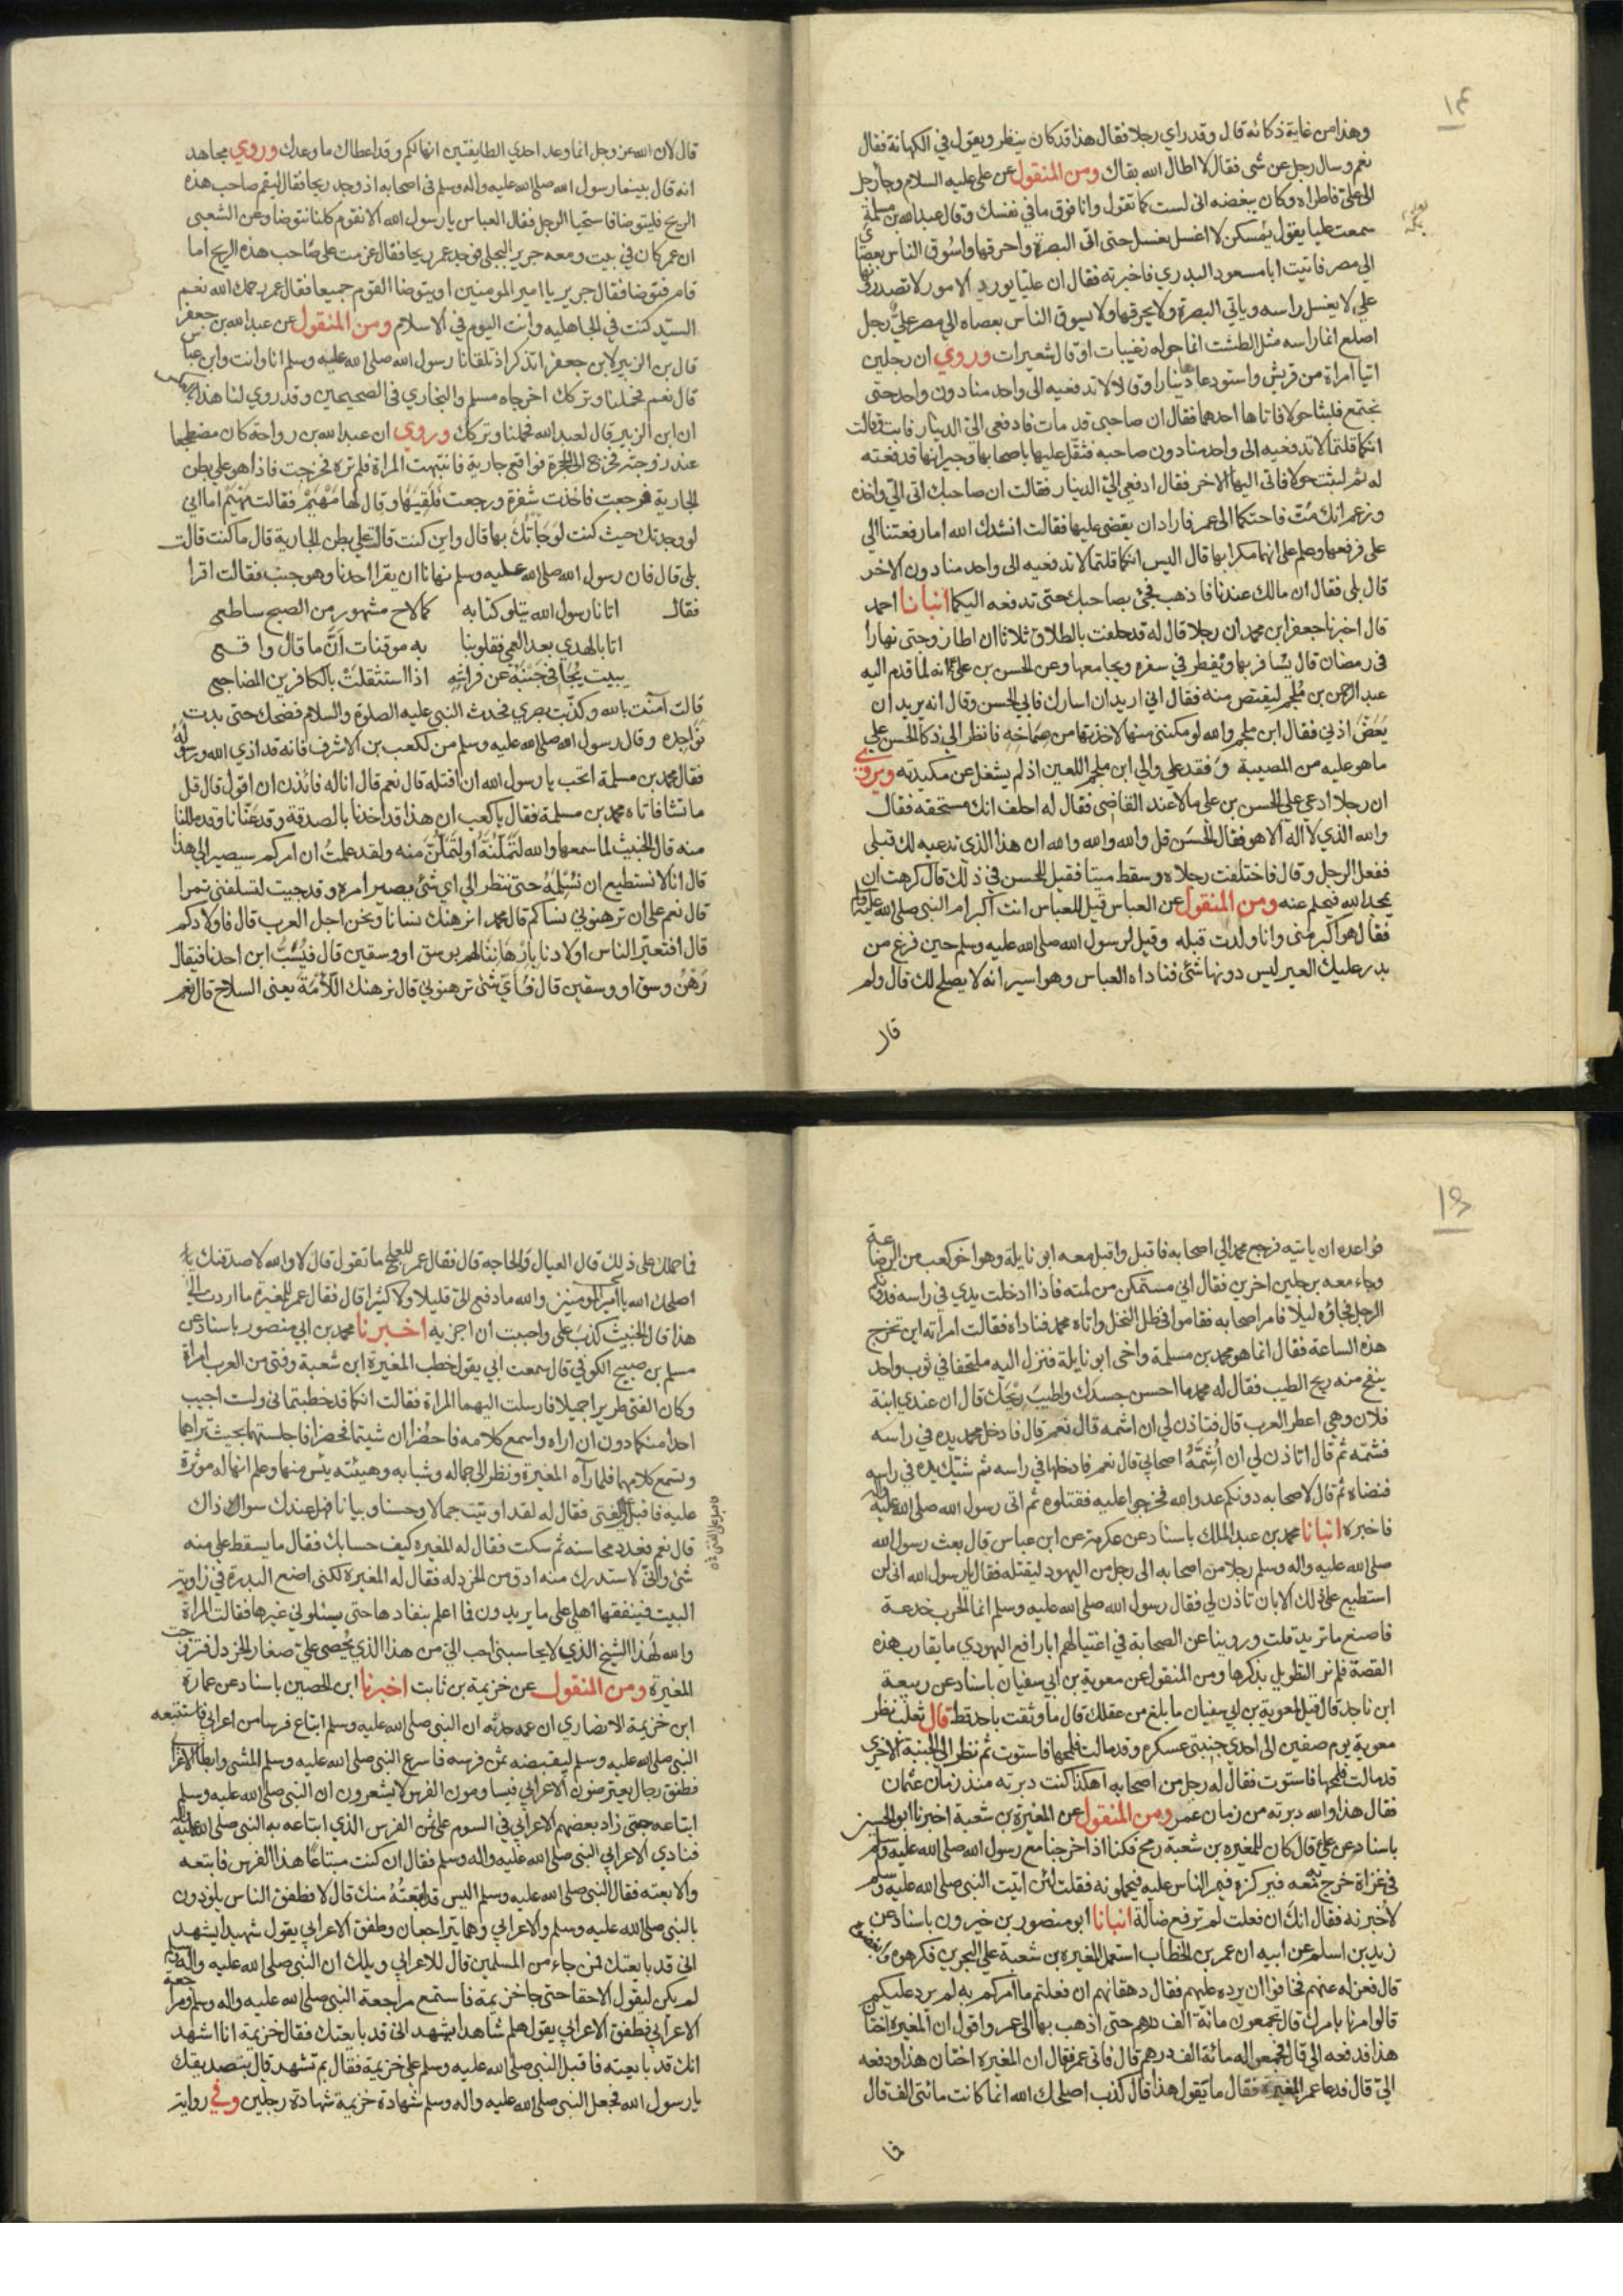 ١٤
وهذا من غاية ذكائه قال وقد راي رجلا فقال هذا قد كان ينظر ويقول في الكهانة فقال
نعم وسال رجل عن شى فقال لا اطال الله بقاك ومن المنقول عن على عليه السلام وجا رجل
الى على فاطراه وكان يبغضه انى لست كما تقول وانا فوق ما في نفسك وقال عبدالله بن مسلمة
سمعت عليا يقول بمسكن لا اغسل بغسل حتى اتى البصرة واحرقها واسوق الناس بعصاي
الى مصر فاتيت ابا مسعود البدري فاخبرته فقال ان عليا يورد الامور لا تصدرونها
على لا يغسل راسه وياتي البصرة ولا يحرقها ولا يسوق الناس بعصاه الى مصر علىٌّ رجل
اصلع انما راسه مثل الطشت انما حوله زغيبات او قال شعيرات وروي ان رجلين
اتيا امراة من قريش واستودعاها دينارا وقالا لا تدفعيه الى واحد منا دون واحد حتى
نجتمع فلبثا حولا فاتاها احدهما فقال ان صاحبى قد مات فادفعى الىّ الدينار فابت وقالت
انكما قلتما لا تدفعيه الى واحد منا دون صاحبه فثقل عليها باصحابها وجيرانها فدفعته
له ثم لبثت حولا فاتى اليها الاخر فقال ادفعى الىّ الدينار فقالت ان صاحبك اتى الىّ واخذه
وزعم انك متّ فاحتكما الى عمر فاراد ان يقضى عليها فقالت انشدك الله اما رفعتنا الى
على فرفعها وعلم على انهما مكرا بها قال اليس انكما قلتما لا تدفعيه الى واحد منا دون الاخر
قال بلى فقال ان مالك عندنا فاذهب فجئ بصاحبك حتى تدفعه اليكما انبانا احمد
قال اخبرنا جعفر ابن محمد ان رجلا قال له قد حلفت بالطلاق ثلاثا ان اطا زوجتى نهارا
فى رمضان قال يسافر بها ويفطر في سفره ويجامعها وعن الحسن بن على انه لما قدم اليه
عبد الرحمن بن ملجم ليقتص منه فقال اني اريد ان اسارك فابي الحسن وقال انه يريد ان
يعضّ اذني فقال ابن ملجم والله لو مكننى منها لاخذتها من صماخه فانظر الى ذكا الحسن على
ما هو عليه من المصيبة وفقد على والى ابن ملجم اللعين اذ لم يشغل عن مكيدته ويروى
ان رجلا ادعى على الحسن بن على مالا عند القاضى فقال له احلف انك مستحقه فقال
والله الذي لا اله الا هو فقال الحسن قل والله والله والله ان هذا الذي تدعيه لك قبلى
ففعل الرجل وقال فاختلفت رجلاه وسقط ميتا فقيل للحسن في ذلك قال كرهت ان
يمجد الله فيحلم عنه ومن المنقول عن العباس قيل للعباس انت اكبر ام النبى صلى الله عليه وسلم
فقال هو اكبر منى وانا ولدت قبله وقيل لرسول الله صلى الله عليه وسلم حين فرغ من
بدر عليك العير ليس دونها شئ فناداه العباس وهو اسير انه لا يصلح لك قال ولم
قال
قال لان الله عز وجل انما وعد احدي الطايفتين انها لكم وقد اعطاك ما وعدك وروي مجاهد
انه قال بينما رسول الله صلى الله عليه واله وسلم فى اصحابه اذ وجد ريحا فقال ليقم صاحب هذه
الريح فليتوضا فاستحيا الرجل فقال العباس يا رسول الله الا نقوم كلنا نتوضا وعن الشعبى
ان عمر كان في بيت ومعه جرير البجلى فوجد عمر ريحا فقال عزمت على صاحب هذه الريح اما
قام فتوضا فقال جرير يا امير المومنين او يتوضا القوم جميعا فقال عمر رحمك الله نعم
السيّد كنت في الجاهليه وانت اليوم في الاسلام ومن المنقول عن عبد الله بن جعفر
قال بن الزبير لابن جعفر اتذكر اذ تلقانا رسول الله صلى الله عليه وسلم انا وانت وابن عباس
قال نعم فحملنا وتركك اخرجاه مسلم والبخاري فى الصحيحين وقد روي لنا هذا
ان ابن الزبير قال لعبد الله فحملنا وتركك وروي ان عبد الله بن رواحة كان مضطجعا
عند زوجته فخرج الى الحجرة فواقع جارية فانتبهت المراة فلم تره فخرجت فاذا هو على بطن
الجارية فرجعت فاخذت شفرة ورجعت فلقيها وقال لها مَهْيَمْ فقالت مهيم اما اني
لو وجدتك حيث كنت لوجأتك بها قال واين كنت قالت على بطن الجارية قال ما كنت قالت
بلى قال فان رسول الله صلى الله عليه وسلم نهانا ان يقرا احدنا وهو جنب فقالت اقرا
فقال اتانا رسول الله يتلو كتابه كما لاح مشهور من الصبح ساطع
اتا بالهدي بعد العمى فقلوبنا به موقنات أنَّ ما قال واقع
يبيت يُجافى جَنْبَهُ عن فراشه اذا استثقلتْ بالكافرين المضاجع
قالت آمنت بالله وكذّبت بصري فحدث النبي عليه الصلوة والسلام فضحك حتى بدت
نواجده وقال رسول الله صلى الله عليه وسلم من لكعب بن الاشرف فانه قد اذي الله ورسوله
فقال محمد بن مسلمة اتحب يا رسول الله ان اقتله قال نعم قال انا له فائذن ان اقول قال قل
ما تشا فاتاه محمد بن مسلمة فقال يا كعب ان هذا قد اخذنا بالصدقة وقد عَنّانا وقد مللنا
منه قال الخبيث لما سمعها والله لَتَمَلّنَّهُ او لتَمَلُّنّ منه ولقد علمتُ ان امركم سيصير الى هذا
قال انا لا نستطيع ان نسْلِمَهُ حتى ننظر الى اي شئ يصير امره وقد جيت لتسلفنى تمرا
قال نعم على ان ترهنوني نساكم قال محمد انرهنك نسانا ونحن اجل العرب قال فاولادكم
قال افتعيّر الناس اولادنا بارْهَانِنَا لهم بوسق او وسقين قال فيُسَبّ ابن احدنا فيقال
رَهْنُ وسق او وسقين قال فأيّ شئ ترهنوني قال نرهنك اللأمة يعنى السلاح قال نعم
١٥
فواعده ان ياتيه فرجع محمد الى اصحابه فاقبل واقبل معه ابو نايلة وهو اخو كعب من الرضاعة
وجاء معه برجلين اخرين فقال انى مستمكن من لمته فاذا ادخلت يدي في راسه فدونكم
الرجل فجاؤه ليلا فامر اصحابه فقاموا في ظل النخل واتاه محمد فناداه فقالت امراته اين تخرج
هذه الساعة فقال انما هو محمد بن مسلمة واخى ابو نايلة فنزل اليه ملتحفا في ثوب واحد
ينفح منه ريح الطيب فقال له محمد ما احسن جسدَك واطيبَ ريْحَك قال ان عندي ابنة
فلان وهي اعطر العرب قال فتاذن لي ان اشمه قال نعم قال فادخل محمد يده في راسه
فشمّه ثم قال اتاذن لي ان أُشِمَّهُ اصحابي قال نعم فادخلها في راسه ثم شبّك يده في راسه
فنضاه ثم قال لاصحابه دونكم عدو الله فخرجوا عليه فقتلوه ثم اتى رسول الله صلى الله عليه واله
فاخبره انبانا محمد بن عبد الملك باسناد عن عكرمة عن ابن عباس قال بعث رسول الله
صلى الله عليه واله وسلم رجلا من اصحابه الى رجل من اليهود ليقتله فقال يا رسول الله انى لن
استطيع على ذلك الا بان تاذن لي فقال رسول الله صلى الله عليه وسلم انما الحرب خدعة
فاصنع ما تريد قلت وروينا عن الصحابة في اغتيالهم ابا رافع اليهودي ما يقارب هذه
القصة فلم نر التطويل بذكرها ومن المنقول عن معوية بن ابي سفيان باسناد عن ربيعة
ابن ناجد قال قيل لمعوية بن ابي سفيان ما بلغ من عقلك قال ما وثقت باحد قط قال ثعلب نظر
معوية يوم صفين الى احدي جنبتى عسكره وقد مالت فلمحها فاستوت ثم نظر الى الجنبة الاخري
قد مالت فلمحها فاستوت فقال له رجل من اصحابه اهكذا كنت دبرته منذ زمان عثمان
فقال هذا والله دبرته من زمان عمر ومن المنقول عن المغيرة بن شعبة اخبرنا ابو الحسن
باسناد عن على قال كان للمغيره بن شعبة رمح فكنا اذا خرجنا مع رسول الله صلى الله عليه وسلم
فى غزاة خرج به معه فيركزه فيمر الناس عليه فيحملونه فقلت لئن اتيت النبى صلى الله عليه وسلم
لأخبرنه فقال انك ان فعلت لم ترفع ضالة انبانا ابو منصور بن خيرون باسناد عن
زيد بن اسلم عن ابيه ان عمر بن الخطاب استعمل المغيره بن شعبة على البحرين فكرهوه وابغضوه
قال فعزله عنهم فخافوا ان يرده عليهم فقال دهقانهم ان فعلتم ما امركم به لم يرد عليكم
قالوا مرنا بامرك قال تجمعون مائة الف درهم حتى اذهب بها الى عمر واقول ان المغيره اختان
هذا فدفعه الىّ قال فجمعوا له مائة الف درهم قال فاتى عمر فقال ان المغيره اختان هذا ودفعه
الىّ قال فدعا عمر المغيرة فقال ما تقول هذا قال كذب اصلحك الله انما كانت مائتى الف قال
فا
فما حملك على ذلك قال العيال والحاجه قال فقال عمر للعلج ما تقول قال لا والله لاصدقنك
اصلحك الله يا امير المومنين والله ما دفع الىّ قليلا ولا كثيرا قال فقال عمر للمغيرة ما اردت الى
هذا قال الخبيث كذب على واحببت ان اجزيه اخبرنا محمد بن ابي منصور باسناد عن
مسلم بن صبيح الكوفي قال سمعت ابي يقول خطب المغيرة ابن شعبة وفتى من العرب امراة
وكان الفتى طريرا جميلا فارسلت اليهما المراة فقالت انكما قد خطبتمانى ولست اجيب
احدا منكما دون ان اراه واسمع كلامه فاحضرا ان شيتما فحضرا فاجلستهما بحيث تراهما
وتسمع كلامهما فلما رآه المغيرة ونظر الى جماله وشبابه وهيئته يئس منها وعلم انها له موثرة
عليه فاقبل على الفتى فقال له لقد اوتيت جمالا وحسنا وبيانا فهل عندك سوا ذاك
قال نعم فعدد محاسنه ثم سكت فقال له المغيره كيف حسابك فقال ما يسقط على منه
شئ وانّى لاستدرك منه ادق من الخردله فقال له المغيرة لكنى اضع البدرة في زاوية
البيت فينفقها اهلى على ما يريدون فما اعلم بنفادها حتى يسئلوني غيرها فقالت المراة
والله لهذا الشيخ الذي لا يحاسبنى احب الىّ من هذا الذي يُحصى علىّ صغار الخردل فتزوجت
المغيرة ومن المنقول عن خزيمة بن ثابت اخبرنا ابن الحصين باسناد عن عمارة
ابن خزيمة الانصاري ان عمه حدثه ان النبى صلى الله عليه وسلم ابتاع فرسا من اعرابي فاستتبعه
النبى صلى الله عليه وسلم ليقبضه ثمن فرسه فاسرع النبى صلى الله عليه وسلم المشى وابطا الاعرابى
فطفق رجال يعترضون الاعرابي فيساومون الفرس لا يشعرون ان النبى صلى الله عليه وسلم
ابتاعه حتى زاد بعضهم الاعرابي في السوم على ثمن الفرس الذي ابتاعه به النبى صلى الله عليه واله
فنادي الاعرابي النبى صلى الله عليه واله وسلم فقال ان كنت مبتاعًا هذا الفرس فابتعه
والا بعته فقال النبى صلى الله عليه وسلم اليس قد ابتعتُهُ منك قال لا فطفق الناس يلوذون
بالنبى صلى الله عليه وسلم والاعرابي وهما يتراجعان وطفق الاعرابي يقول شهيدا يشهد
انى قد بايعتك فمن جاء من المسلمين قال للاعرابي ويلك ان النبى صلى الله عليه واله وسلم
لم يكن ليقول الا حقا حتى جا خزيمة فاستمع مراجعة النبى صلى الله عليه واله وسلم ومراجعة
الاعرابي فطفق الاعرابي يقول هلم شاهدا يشهد انى قد بايعتك فقال خزيمة انا اشهد
انك قد بايعته فاقبل النبى صلى الله عليه وسلم على خزيمة فقال بم تشهد قال بتصديقك
يا رسول الله فجعل النبى صلى الله عليه واله وسلم شهادة خزيمة شهادة رجلين وفي رواية